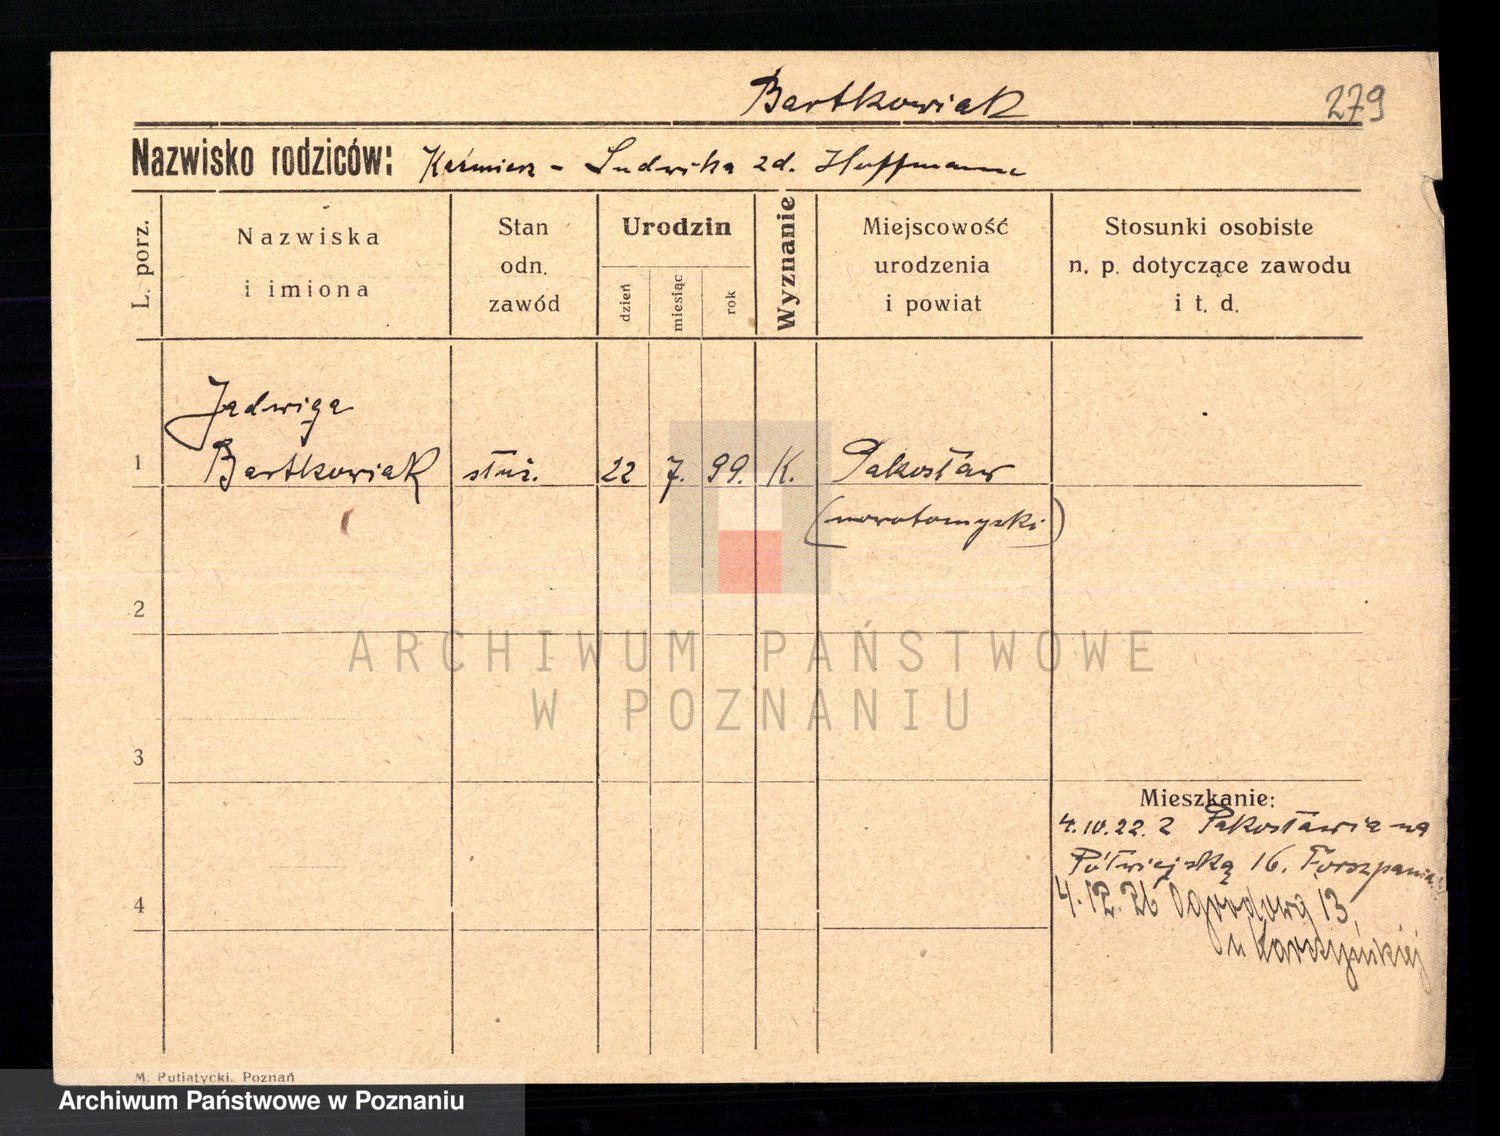 Bartkowiak
279
Nazwisko rodziców: Kaźmierz - Ludwika zd. Hoffmann
L. porz.
Nazwiska
i imiona
Stan
odn.
zawód
Urodzin
dzień
miesiąc
rok
Wyznanie
Miejscowość
urodzenia
i powiat
Stosunki osobiste
n. p. dotyczące zawodu
i t. d.
Jadwiga
1 Bartkowiak służ. 22 7. 99. K. Pakosław
(nowotomyski)
2
ARCHIWUM PAŃSTWOWE
W POZNANIU
3
Mieszkanie:
4.10.22. z Pakosławia na
Półwiejską 16.
4
4.12.26 Ogrodowa 13,
u Karczyńskiej
M. Putiatycki, Poznań
Archiwum Państwowe w Poznaniu